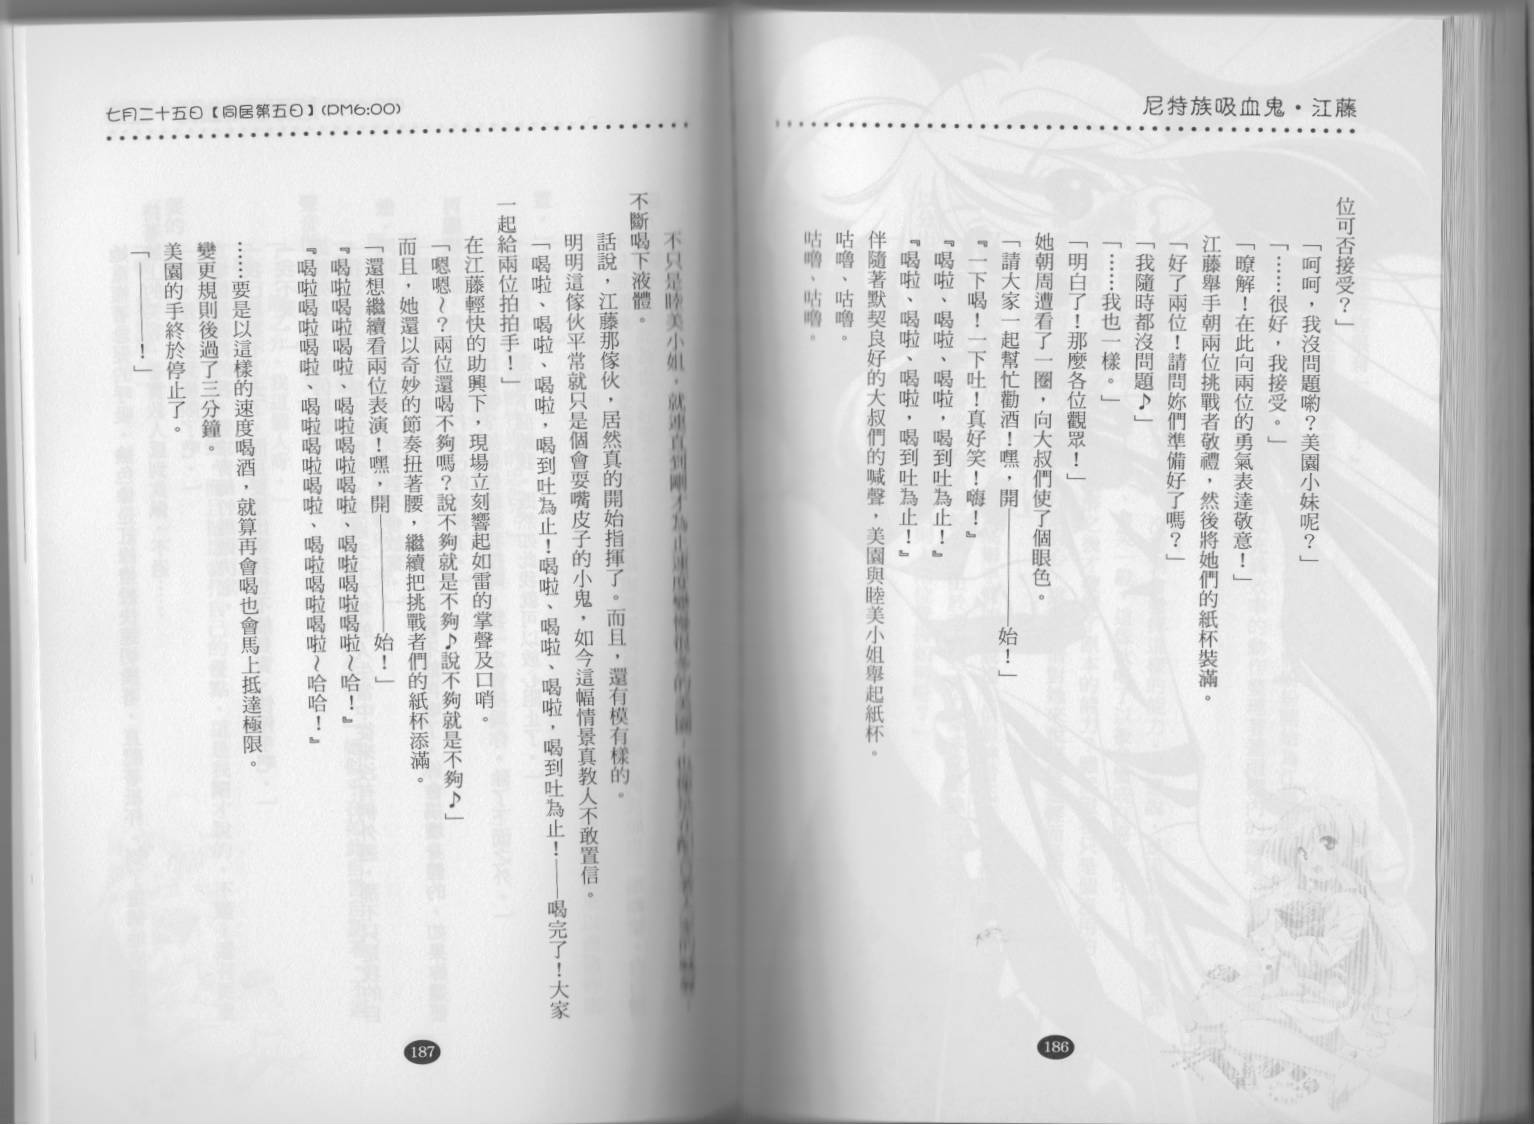 尼特族吸血鬼・江藤
位可否接受？」
「呵呵，我沒問題喲？美園小妹呢？」
「……很好，我接受。」
「暸解！在此向兩位的勇氣表達敬意！」
江藤舉手朝兩位挑戰者敬禮，然後將她們的紙杯裝滿。
「好了兩位！請問妳們準備好了嗎？」
「我隨時都沒問題♪」
「……我也一樣。」
「明白了！那麼各位觀眾！」
她朝周遭看了一圈，向大叔們使了個眼色。
「請大家一起幫忙勸酒！嘿，開————始！」
『一下喝！一下吐！真好笑！嗨！』
『喝啦、喝啦、喝啦，喝到吐為止！』
『喝啦、喝啦、喝啦，喝到吐為止！』
伴隨著默契良好的大叔們的喊聲，美園與睦美小姐舉起紙杯。
咕嚕、咕嚕。
咕嚕、咕嚕。
186
七月二十五日【同居第五日】(PM6:00)
不只是睦美小姐，就連直到剛才為止速度變慢很多的美園
不斷喝下液體。
話說，江藤那傢伙，居然真的開始指揮了。而且，還有模有樣的。
明明這傢伙平常就只是個會耍嘴皮子的小鬼，如今這幅情景真教人不敢置信。
「喝啦、喝啦、喝啦，喝到吐為止！喝啦、喝啦、喝啦，喝到吐為止！——喝完了！大家
一起給兩位拍拍手！」
在江藤輕快的助興下，現場立刻響起如雷的掌聲及口哨。
「嗯嗯～？兩位還喝不夠嗎？說不夠就是不夠♪說不夠就是不夠♪」
而且，她還以奇妙的節奏扭著腰，繼續把挑戰者們的紙杯添滿。
「還想繼續看兩位表演！嘿，開————始！」
『喝啦喝啦喝啦、喝啦喝啦喝啦、喝啦喝啦喝啦～哈！』
『喝啦喝啦喝啦、喝啦喝啦喝啦、喝啦喝啦喝啦～哈哈！』
……要是以這樣的速度喝酒，就算再會喝也會馬上抵達極限。
變更規則後過了三分鐘。
美園的手終於停止了。
「————！」
187